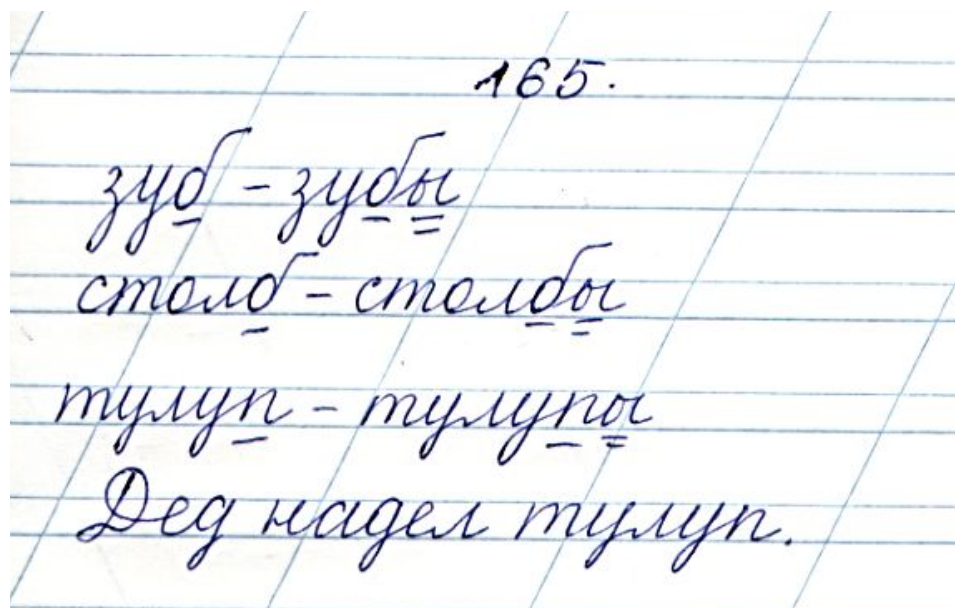 165.
зуб - зубы
столб - столбы
тулуп - тулупы
Дед надел тулуп.